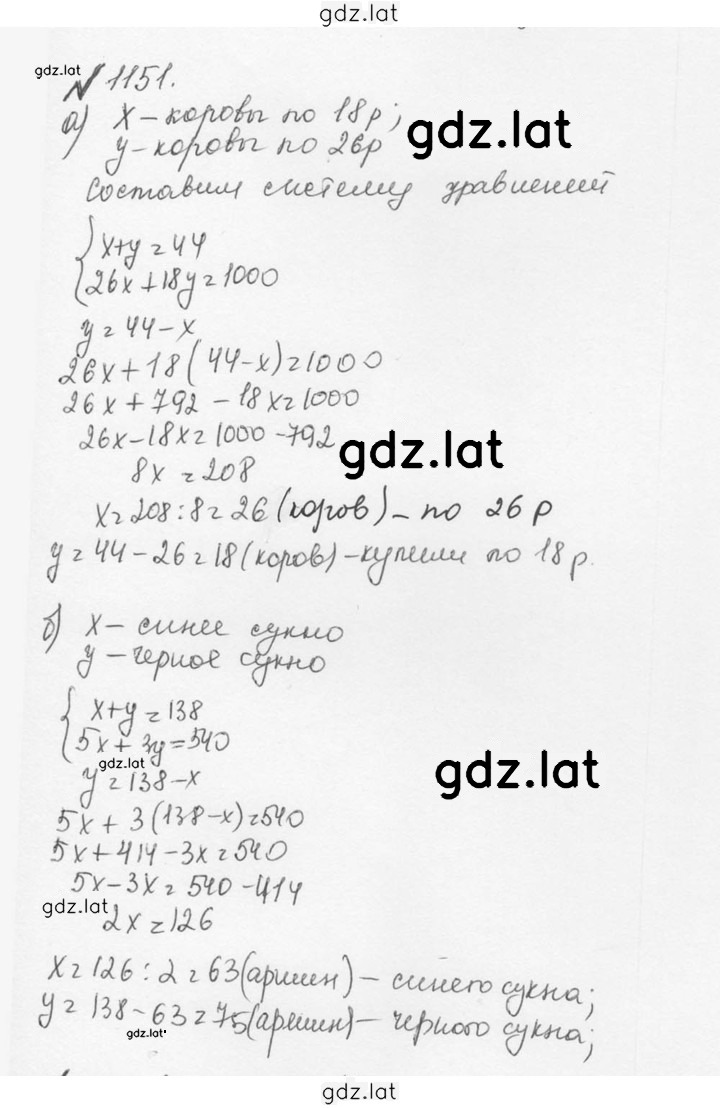 gdz.lat
gdz.lat
N 1151.
а) x – коровы по 18р;
y – коровы по 26р
gdz.lat
Составим систему уравнений
x+y=44
26x+18y=1000
y=44-x
26x+18(44-x)=1000
26x+792-18x=1000
26x-18x=1000-792
gdz.lat
8x=208
x=208:8=26(коров) – по 26р
y=44-26=18(коров) – купили по 18р.
б) x – синее сукно
y – черное сукно
x+y=138
5x+3y=540
gdz.lat
y=138-x
gdz.lat
5x+3(138-x)=540
5x+414-3x=540
5x-3x=540-414
gdz.lat
2x=126
x=126:2=63(аршин) – синего сукна;
y=138-63=75(аршин) – черного сукна;
gdz.lat
gdz.lat